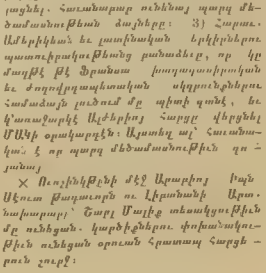 յացնել. Հաւանաբար ունենայ պարզ մե-
ծամասնութեան ձայները: 3) Հարաւ.
Ամերիկեան եւ լատինական երկիրներու
պատուիրակութեանց բանաձեւը, որ կը
մաղթէ թէ Ֆրանսա խաղաղասիրական
եւ ժողովրդապետական սկզբունքներու
համաձայն լուծում մը պիտի գտնէ, եւ
կ'առաջարկէ Ալժերիոյ Հարցը վերցնել
ՄԱԿի օրակարգէն: Այստեղ ալ՝ Հաւանա-
կան է որ պարզ մեծամասնութիւն գո-
յանայ
Ուոշինկթընի մէջ Արաբիոյ Իպն
Սէուտ Թագաւորն ու Լիբանանի Արտ.
նախարարը՝ Շարլ Մալիք տեսակցութիւն
մը ունեցան. կարծիքներու փոխանակու-
թիւն ունեցան օրուան հրատապ հարցե-
րուն շուրջ: